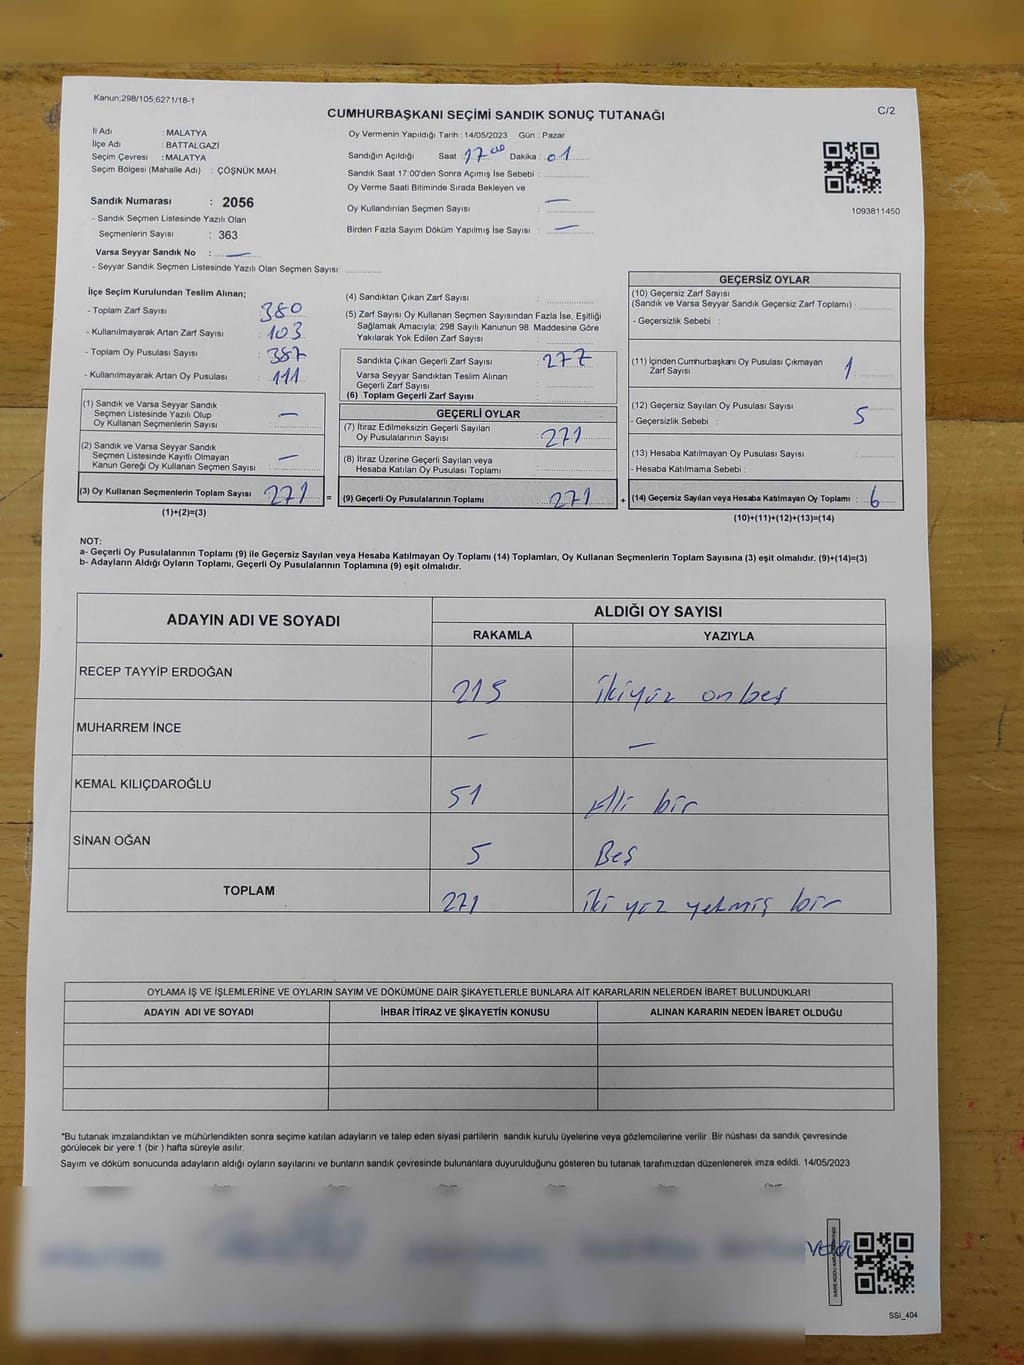 Kanun;298/105;6271/18-1
CUMHURBAŞKANI SEÇİMİ SANDIK SONUÇ TUTANAĞI
C/2
İl Adı : MALATYA
İlçe Adı : BATTALGAZİ
Seçim Çevresi : MALATYA
Seçim Bölgesi (Mahalle Adı) : ÇÖŞNÜK MAH.
Sandık Numarası : 2056
- Sandık Seçmen Listesinde Yazılı Olan
Seçmenlerin Sayısı : 363
Varsa Seyyar Sandık No : —
- Seyyar Sandık Seçmen Listesinde Yazılı Olan Seçmen Sayısı:
Oy Vermenin Yapıldığı Tarih : 14/05/2023 Gün : Pazar
Sandığın Açıldığı Saat : 17 00 Dakika : 01
Sandık Saat 17:00'den Sonra Açımış İse Sebebi :
Oy Verme Saati Bitiminde Sırada Bekleyen ve
Oy Kullandırılan Seçmen Sayısı : —
Birden Fazla Sayım Döküm Yapılmış İse Sayısı : —
1093811450
İlçe Seçim Kurulundan Teslim Alınan;
- Toplam Zarf Sayısı : 380
- Kullanılmayarak Artan Zarf Sayısı : 103
- Toplam Oy Pusulası Sayısı : 387
- Kullanılmayarak Artan Oy Pusulası : 111
(1) Sandık ve Varsa Seyyar Sandık
Seçmen Listesinde Yazılı Olup
Oy Kullanan Seçmenlerin Sayısı : —
(2) Sandık ve Varsa Seyyar Sandık
Seçmen Listesinde Kayıtlı Olmayan
Kanun Gereği Oy Kullanan Seçmen Sayısı : —
(3) Oy Kullanan Seçmenlerin Toplam Sayısı 271
(1)+(2)=(3)
=
(4) Sandıktan Çıkan Zarf Sayısı :
(5) Zarf Sayısı Oy Kullanan Seçmen Sayısından Fazla İse, Eşitliği
Sağlamak Amacıyla; 298 Sayılı Kanunun 98. Maddesine Göre
Yakılarak Yok Edilen Zarf Sayısı :
Sandıkta Çıkan Geçerli Zarf Sayısı : 277
Varsa Seyyar Sandıktan Teslim Alınan
Geçerli Zarf Sayısı :
(6) Toplam Geçerli Zarf Sayısı :
GEÇERLİ OYLAR
(7) İtiraz Edilmeksizin Geçerli Sayılan
Oy Pusulalarının Sayısı : 271
(8) İtiraz Üzerine Geçerli Sayılan veya
Hesaba Katılan Oy Pusulası Toplamı :
(9) Geçerli Oy Pusulalarının Toplamı : 271
+
GEÇERSİZ OYLAR
(10) Geçersiz Zarf Sayısı
(Sandık ve Varsa Seyyar Sandık Geçersiz Zarf Toplamı) :
- Geçersizlik Sebebi :
(11) İçinden Cumhurbaşkanı Oy Pusulası Çıkmayan
Zarf Sayısı : 1
(12) Geçersiz Sayılan Oy Pusulası Sayısı : 5
- Geçersizlik Sebebi :
(13) Hesaba Katılmayan Oy Pusulası Sayısı :
- Hesaba Katılmama Sebebi :
(14) Geçersiz Sayılan veya Hesaba Katılmayan Oy Toplamı : 6
(10)+(11)+(12)+(13)=(14)
NOT:
a- Geçerli Oy Pusulalarının Toplamı (9) ile Geçersiz Sayılan veya Hesaba Katılmayan Oy Toplamı (14) Toplamları, Oy Kullanan Seçmenlerin Toplam Sayısına (3) eşit olmalıdır. (9)+(14)=(3)
b- Adayların Aldığı Oyların Toplamı, Geçerli Oy Pusulalarının Toplamına (9) eşit olmalıdır.
ADAYIN ADI VE SOYADI ALDIĞI OY SAYISI
RAKAMLA YAZIYLA
RECEP TAYYİP ERDOĞAN 215 ikiyüz onbeş
MUHARREM İNCE — —
KEMAL KILIÇDAROĞLU 51 Elli bir
SİNAN OĞAN 5 Beş
TOPLAM 271 iki yüz yetmiş bir
OYLAMA İŞ VE İŞLEMLERİNE VE OYLARIN SAYIM VE DÖKÜMÜNE DAİR ŞİKAYETLERLE BUNLARA AİT KARARLARIN NELERDEN İBARET BULUNDUKLARI
ADAYIN ADI VE SOYADI İHBAR İTİRAZ VE ŞİKAYETİN KONUSU ALINAN KARARIN NEDEN İBARET OLDUĞU
*Bu tutanak imzalandıktan ve mühürlendikten sonra seçime katılan adayların ve talep eden siyasi partilerin sandık kurulu üyelerine veya gözlemcilerine verilir. Bir nüshası da sandık çevresinde
görülecek bir yere 1 (bir ) hafta süreyle asılır.
Sayım ve döküm sonucunda adayların aldığı oyların sayılarını ve bunların sandık çevresinde bulunanlara duyurulduğunu gösteren bu tutanak tarafımızdan düzenlenerek imza edildi. 14/05/2023
SSI_404